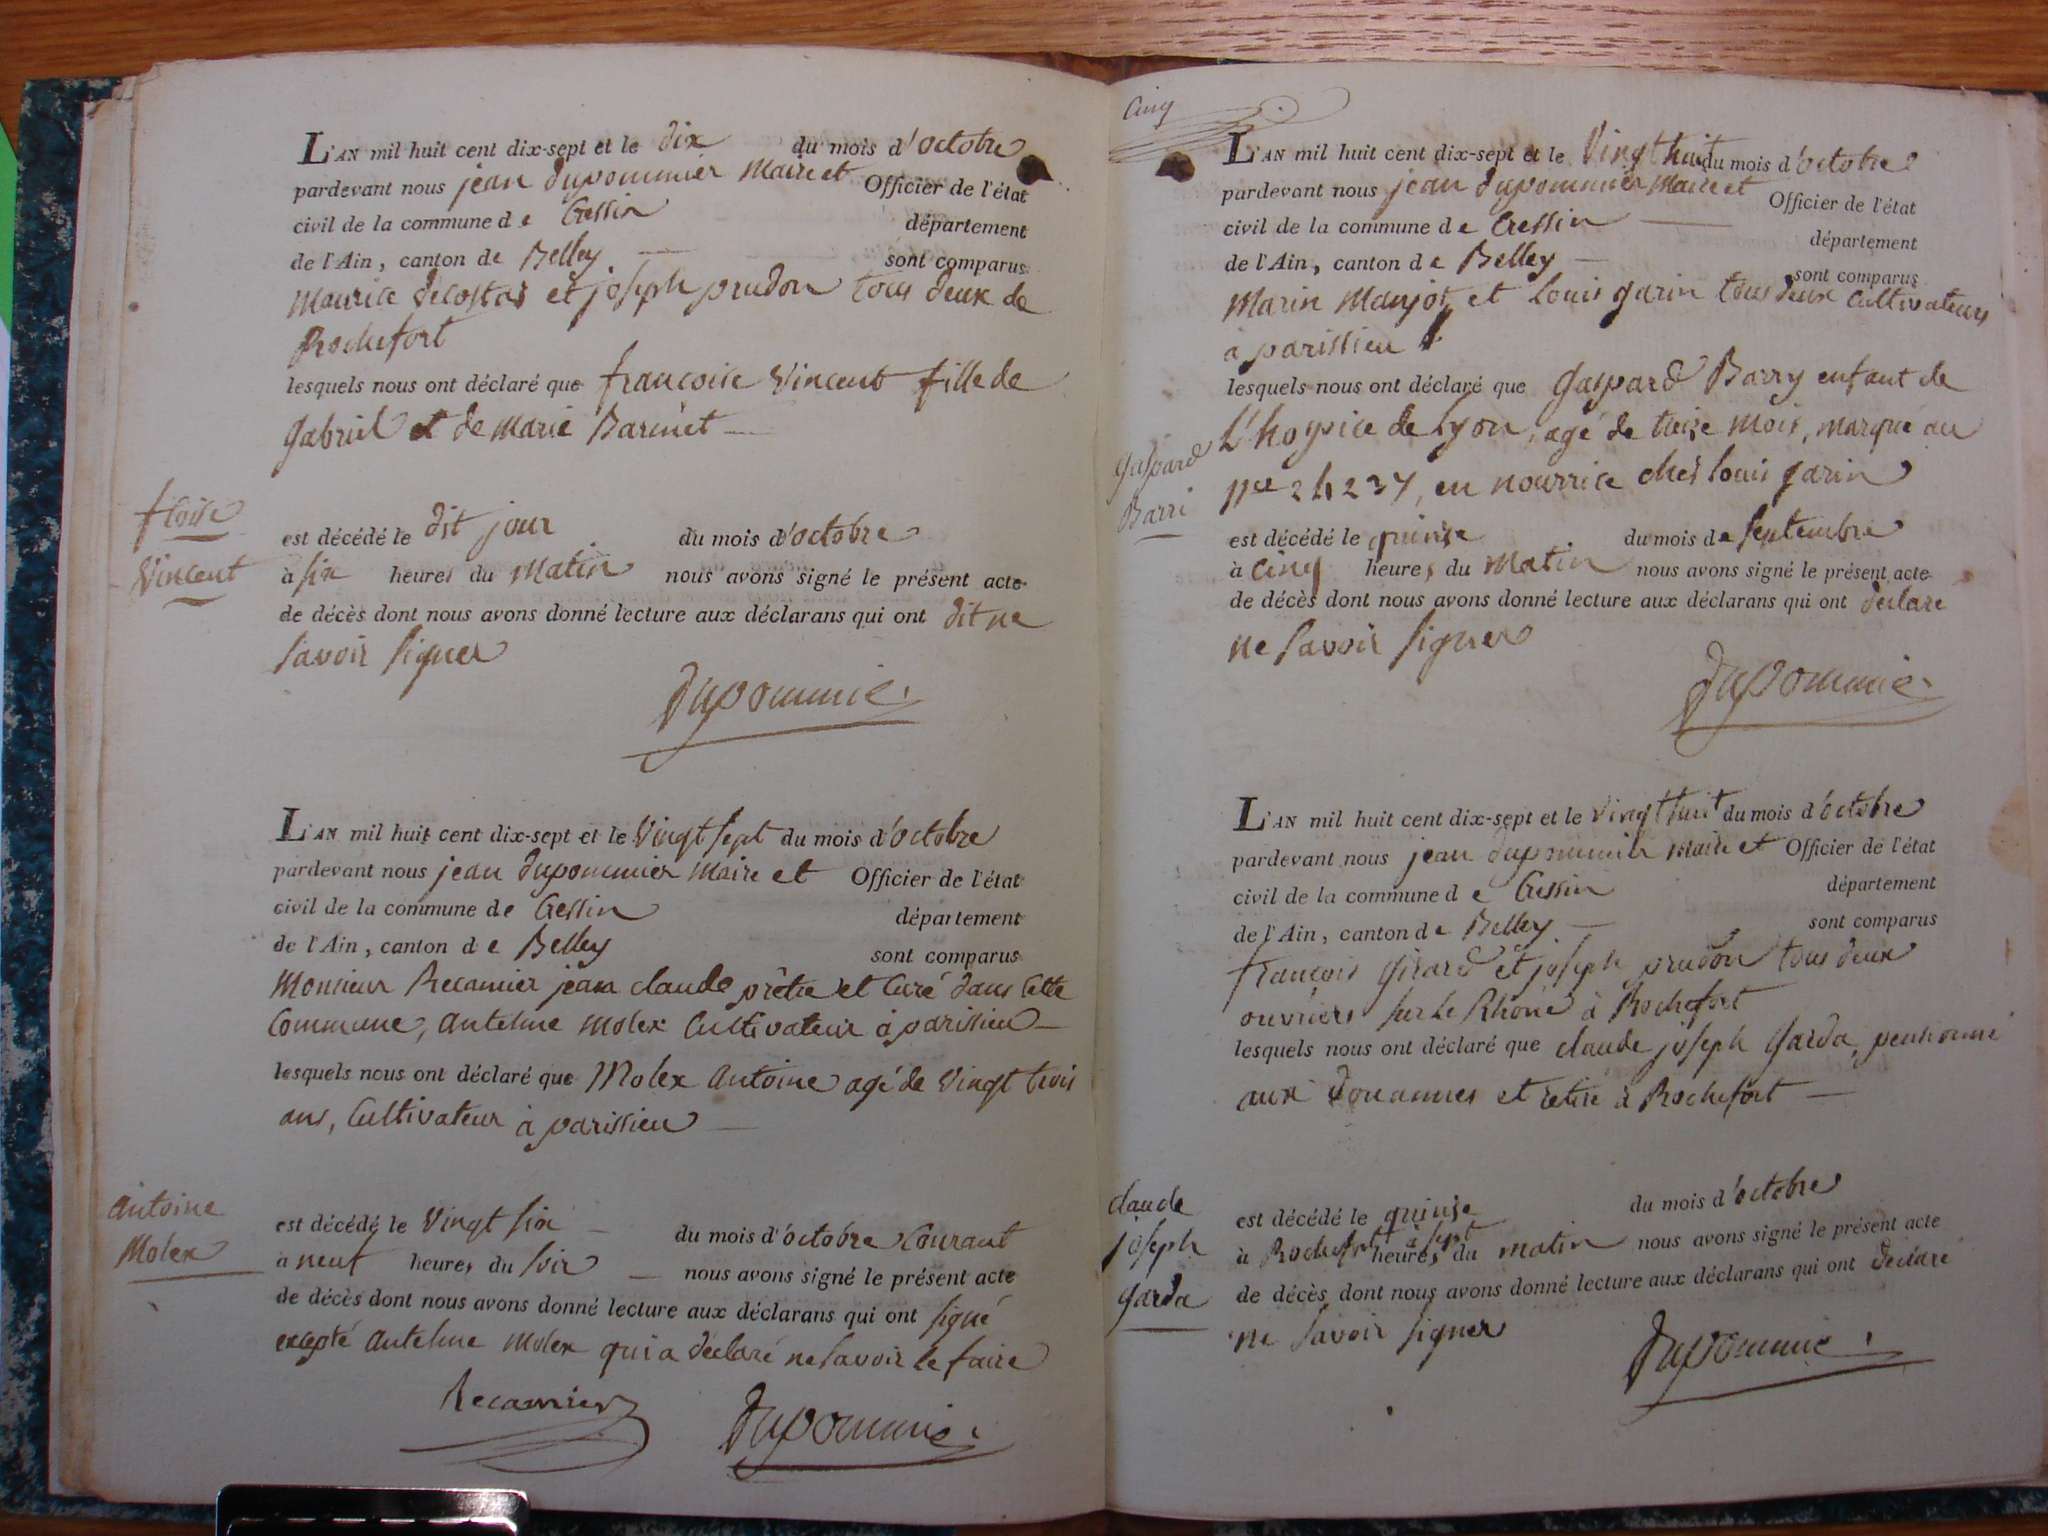 L'AN mil huit cent dix-sept et le dix du mois d'octobre
pardevant nous jean dupommier Maire et Officier de l'état
civil de la commune de Cressin département
de l'Ain, canton de Belley sont comparus
Maurice decostas et joseph prudon tous deux de
Rochefort
lesquels nous ont déclaré que francoise Vincent fille de
Gabriel et de Marie Barinet
fcoise
Vincent
est décédé le dit jour du mois d'octobre
à six heures du matin nous avons signé le présent acte
de décès dont nous avons donné lecture aux déclarans qui ont dit ne
savoir signer
Dupommié
L'AN mil huit cent dix-sept et le Vingt sept du mois d'octobre
pardevant nous jean dupommier Maire et Officier de l'état
civil de la commune de Cressin département
de l'Ain, canton de Belley sont comparus
Monsieur Recamier jean claude prêtre et Curé dans Cette
Commune, antelme Molex Cultivateur à parissieu
lesquels nous ont déclaré que Molex Antoine agé de Vingt trois
ans, Cultivateur à parissieu
antoine
Molex
est décédé le Vingt six du mois d'octobre Courant
à neuf heures du soir nous avons signé le présent acte
de décès dont nous avons donné lecture aux déclarans qui ont signé
excepté antelme Molex qui a déclaré ne savoir le faire
Recamier Dupommié
Cinq
L'AN mil huit cent dix-sept et le Vingt huit du mois d'octobre
pardevant nous jean dupommier Maire et Officier de l'état
civil de la commune de Cressin département
de l'Ain, canton de Belley sont comparus
Marin Manjot et Louis garin tous deux Cultivateurs
à parissieu
lesquels nous ont déclaré que Gaspard Barry enfant de
L'hospice de Lyon, agé de treize mois, marqué au
Nce 24237, en nourrice chez louis garin
Gaspard
Barri
est décédé le quinze du mois de septembre
à Cinq heures du matin nous avons signé le présent acte
de décès dont nous avons donné lecture aux déclarans qui ont declaré
ne savoir signer
Dupommié
L'AN mil huit cent dix-sept et le Vingt huit du mois d'octobre
pardevant nous jean dupommier Maire et Officier de l'état
civil de la commune de Cressin département
de l'Ain, canton de Belley sont comparus
françois Girard et joseph prudon tous deux
ouvriers sur le Rhône à Rochefort
lesquels nous ont déclaré que claude joseph Garda, pensionné
aux Douannes et retiré à Rochefort
claude
joseph
Garda
est décédé le quinze du mois d'octobre
à Rochefort à sept heures du matin nous avons signé le présent acte
de décès dont nous avons donné lecture aux déclarans qui ont déclaré
ne savoir signer
Dupommié